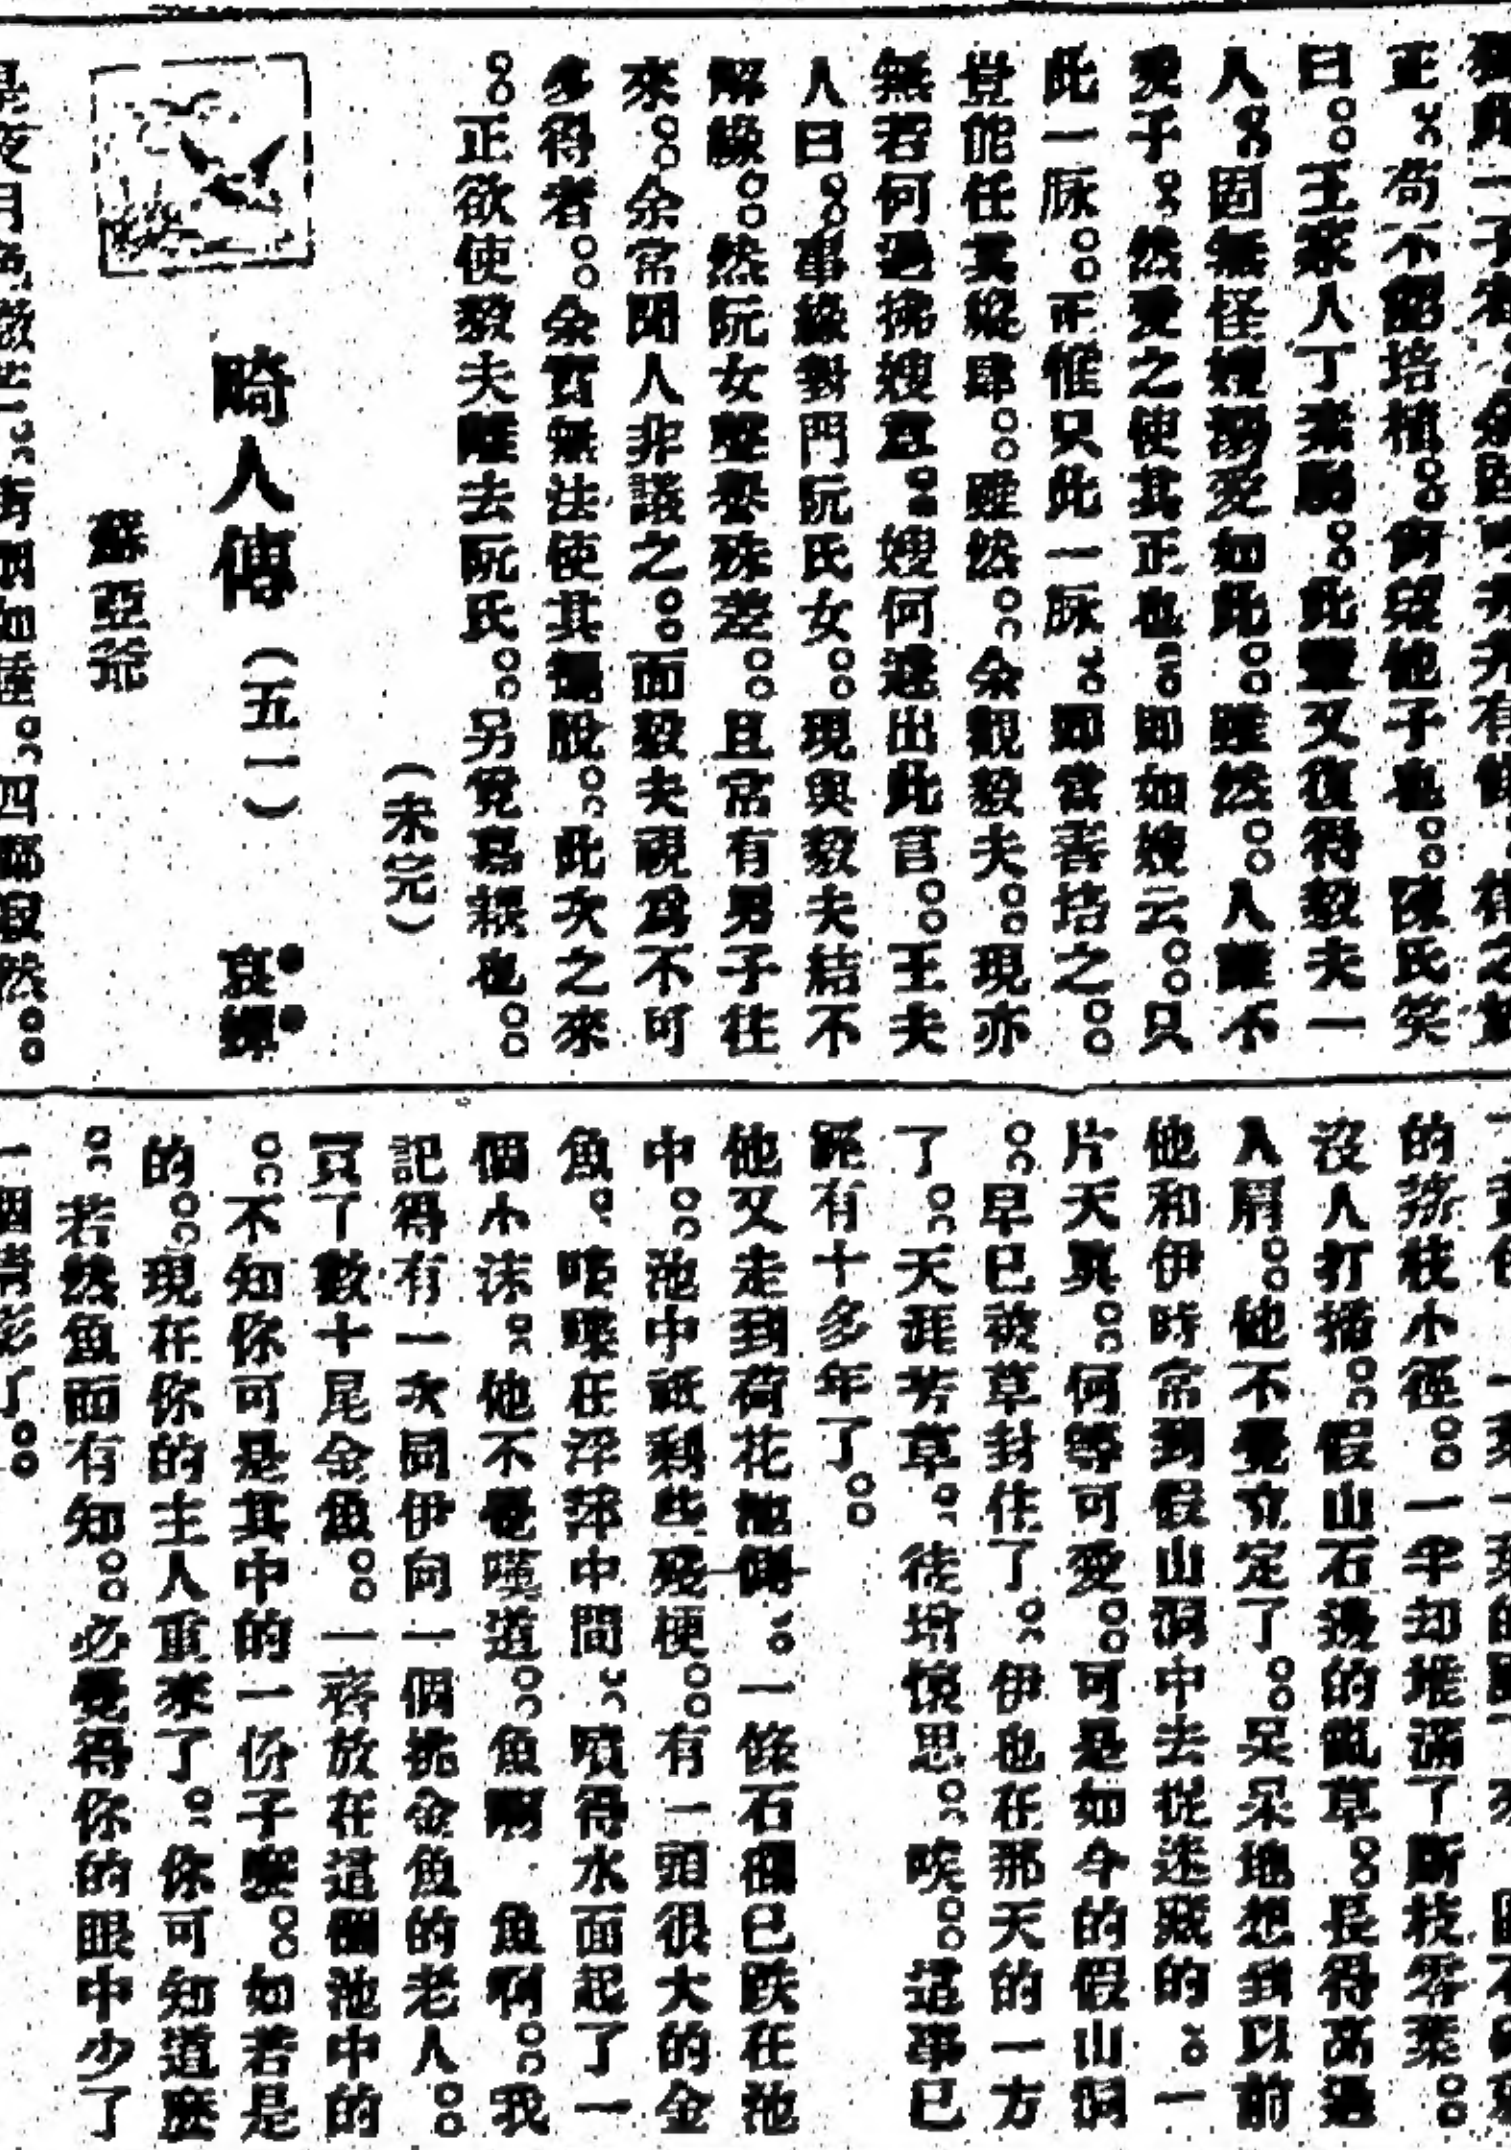 正。苟不韶培植。何望他子也。陳氏笑
曰。王家人丁素勘。此輩又復得毅夫一
人。固無怪嫂溺愛如此。雖然。人誰不
愛子。然愛之使其正也。即如嫂云。只
此一脉。正惟只此一脉。即當善培之。
豈能任其縱肆。雖然。余觀毅夫。現亦
無若何過拂嫂意。嫂何遽出此言。王夫
人曰。事緣對門阮氏女。現與毅夫結不
解緣。然阮女聲譽殊差。且常有男子往
來。余常聞人非議之。面毅夫視爲不可
多得者。余實無法使其擺脫。此次之來
。正欲使毅夫離去阮氏。另覓嘉耦也。
(未完)
畸人傳(五一)
哀蟬
蘇亞爺
的孩枝小徑。一半却堆滿了斷枝零葉。
沒人打掃。假山石邊的亂草。長得高過
人肩。他不覺立定了。呆呆地想到以前
他和伊時常到假山洞中去捉迷藏的。一
片天眞。何等可愛。可是如今的假山洞
。早已被草封住了。伊也在那天的一方
了。天涯芳草。徒增悵思。唉。這事已
距有十多年了。
他又走到荷花池側。一條石欄已跌在池
中。池中祇剩些殘梗。有一頭很大的金
魚。唼喋在浮萍中間。噴得水面起了一
個小沫。他不覺嘆道。魚啊 魚啊。我
記得有一次同伊向一個挑金魚的老人。
買了數十尾金魚。一齊放在這個池中的
。不知你可是其中的一份子麼。如若是
的。現在你的主人重來了。你可知道麼
。若然魚而有知。必覺得你的眼中少了
一個倩影了。